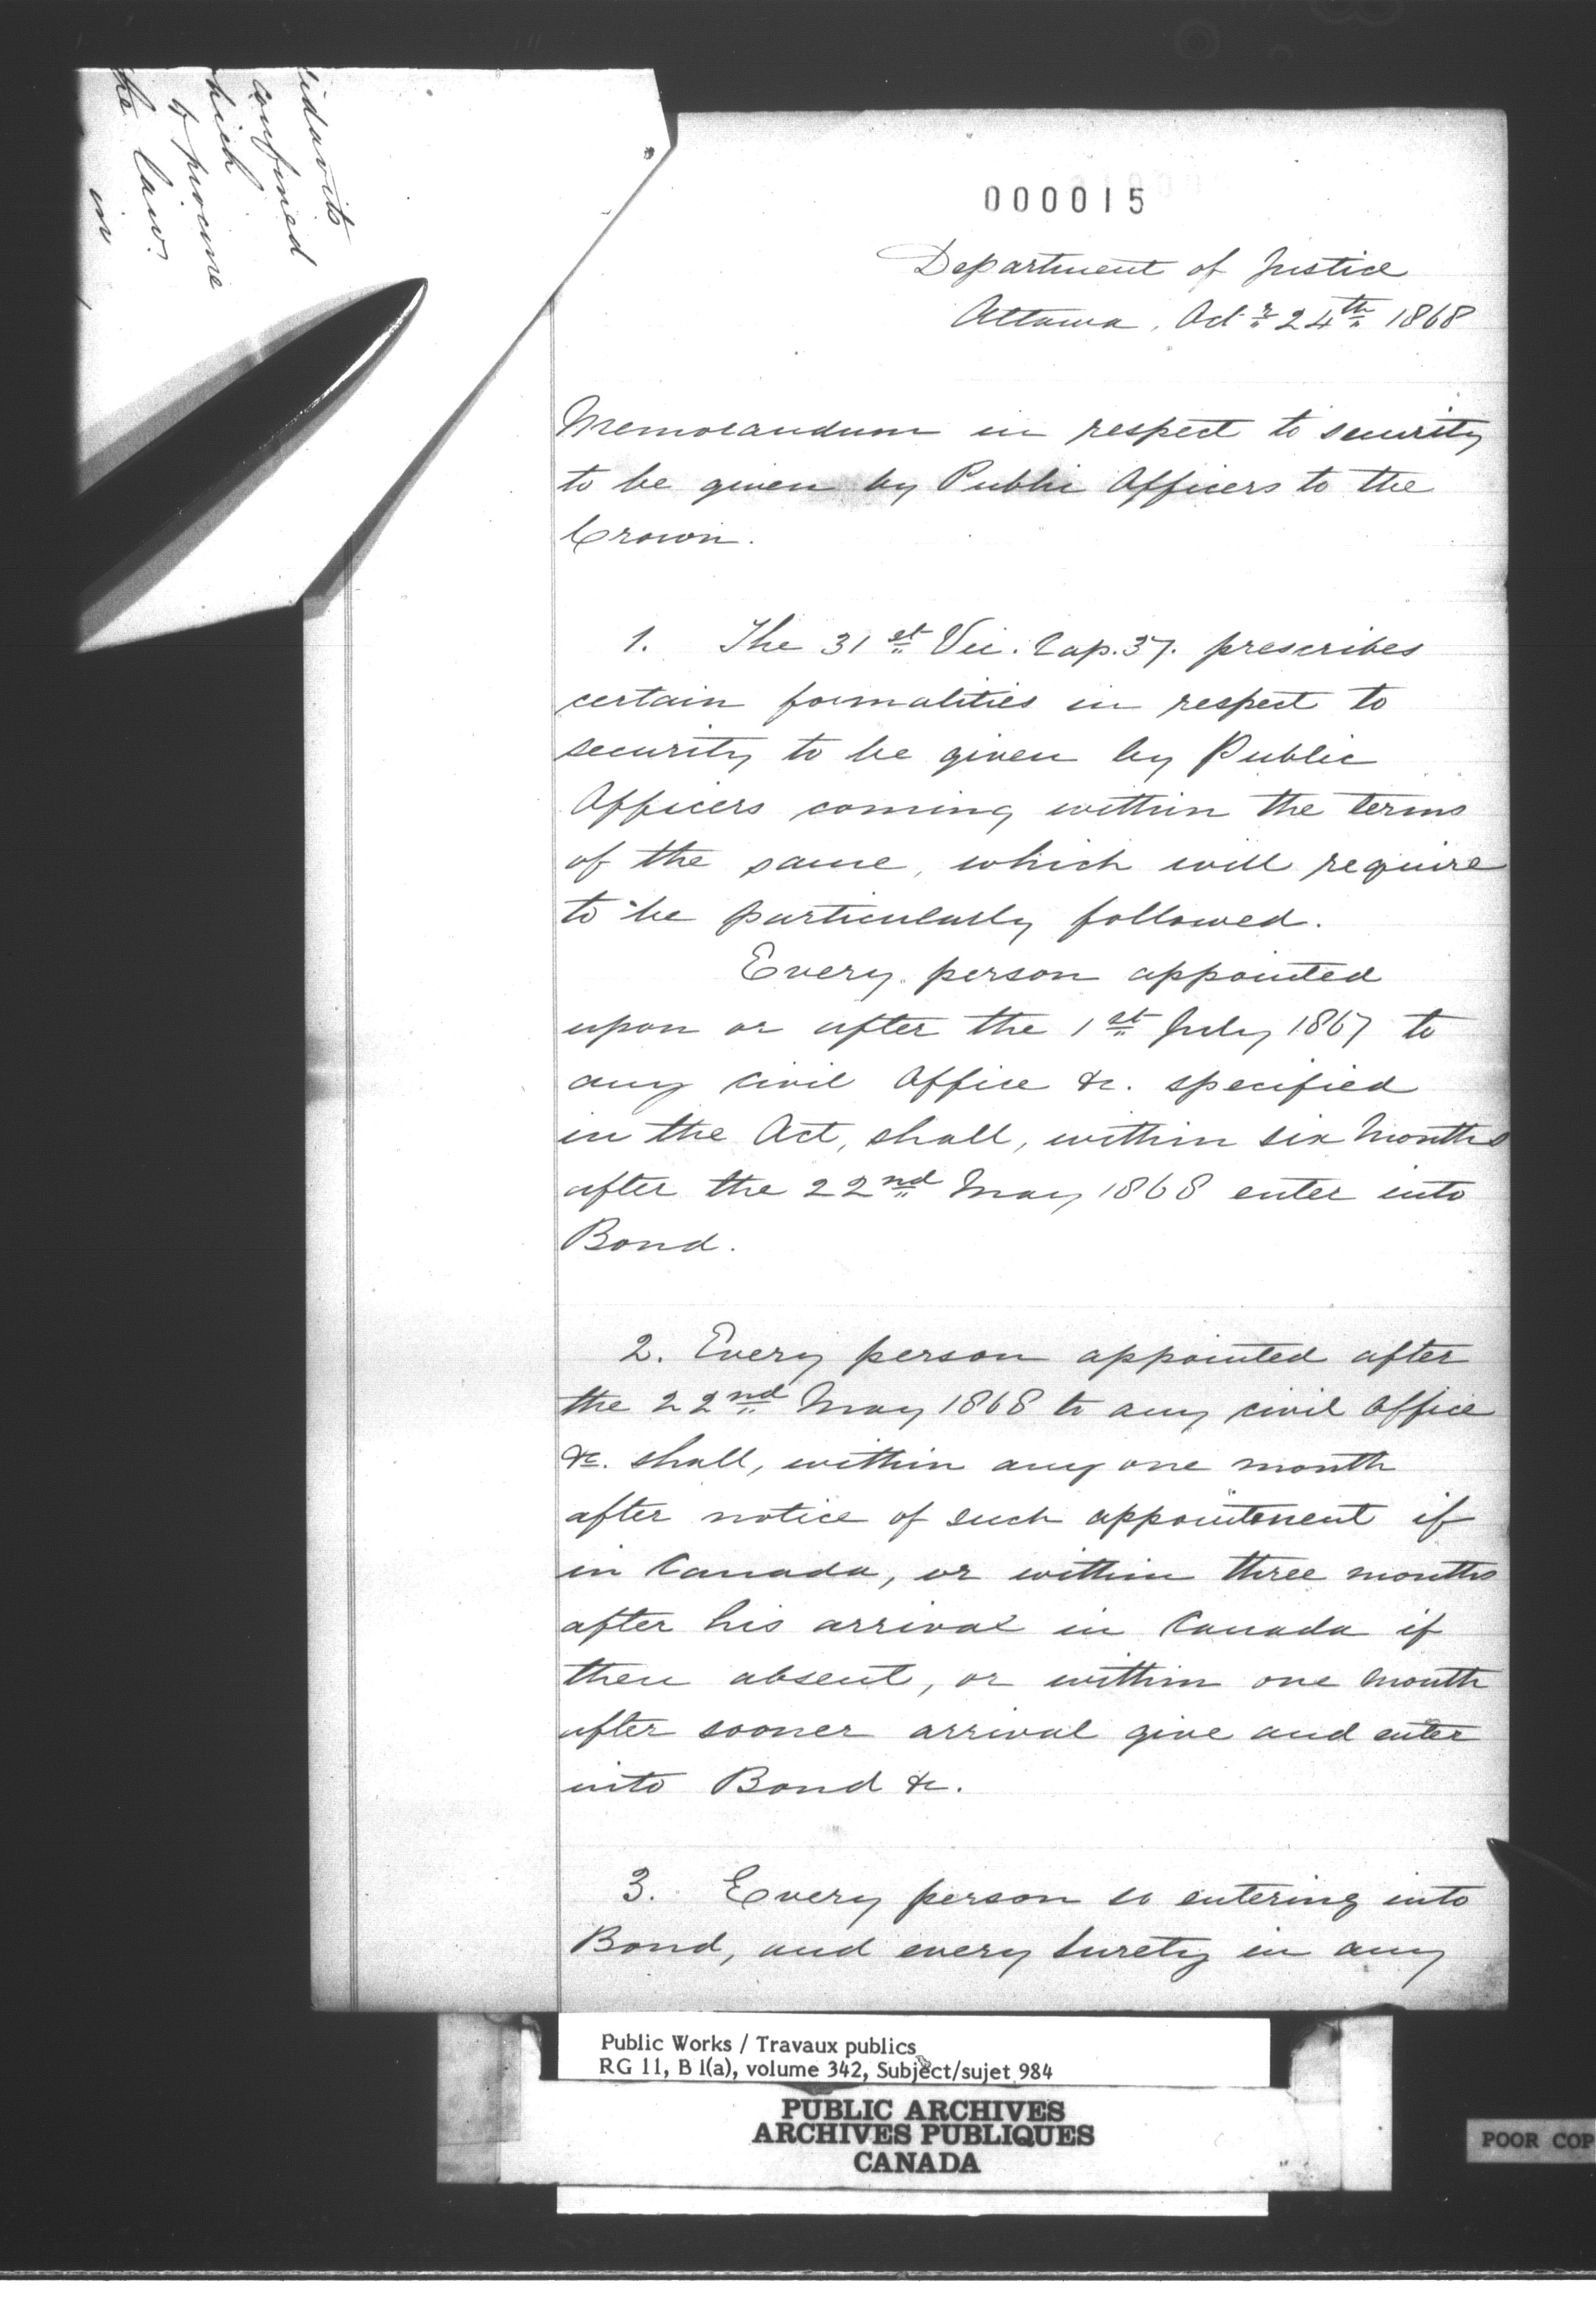 idavits
confined
hich
to procure
he law.
in
000015
Department of Justice
Ottawa, Oct.r 24th 1868
Memorandum in respect to security
to be given by Public Officers to the
Crown.
1. The 31st Vic. Cap. 37. prescribes
certain formalities in respect to
security to be given by Public
Officers coming within the terms
of the same, which will require
to be particularly followed.
Every person appointed
upon or after the 1st July 1867 to
any civil Office &c. specified
in the Act, shall, within six Months
after the 22nd May 1868 enter into
Bond.
2. Every person appointed after
the 22nd May 1868 to any civil Office
&c. shall, within any one month
after notice of such appointment if
in Canada, or within three months
after his arrival in Canada if
then absent, or within one month
after sooner arrival give and enter
into Bond &c.
3. Every person so entering into
Bond, and every Surety in any
Public Works / Travaux publics
RG 11, B 1(a), volume 342, Subject/sujet 984
PUBLIC ARCHIVES
ARCHIVES PUBLIQUES
CANADA
POOR COP